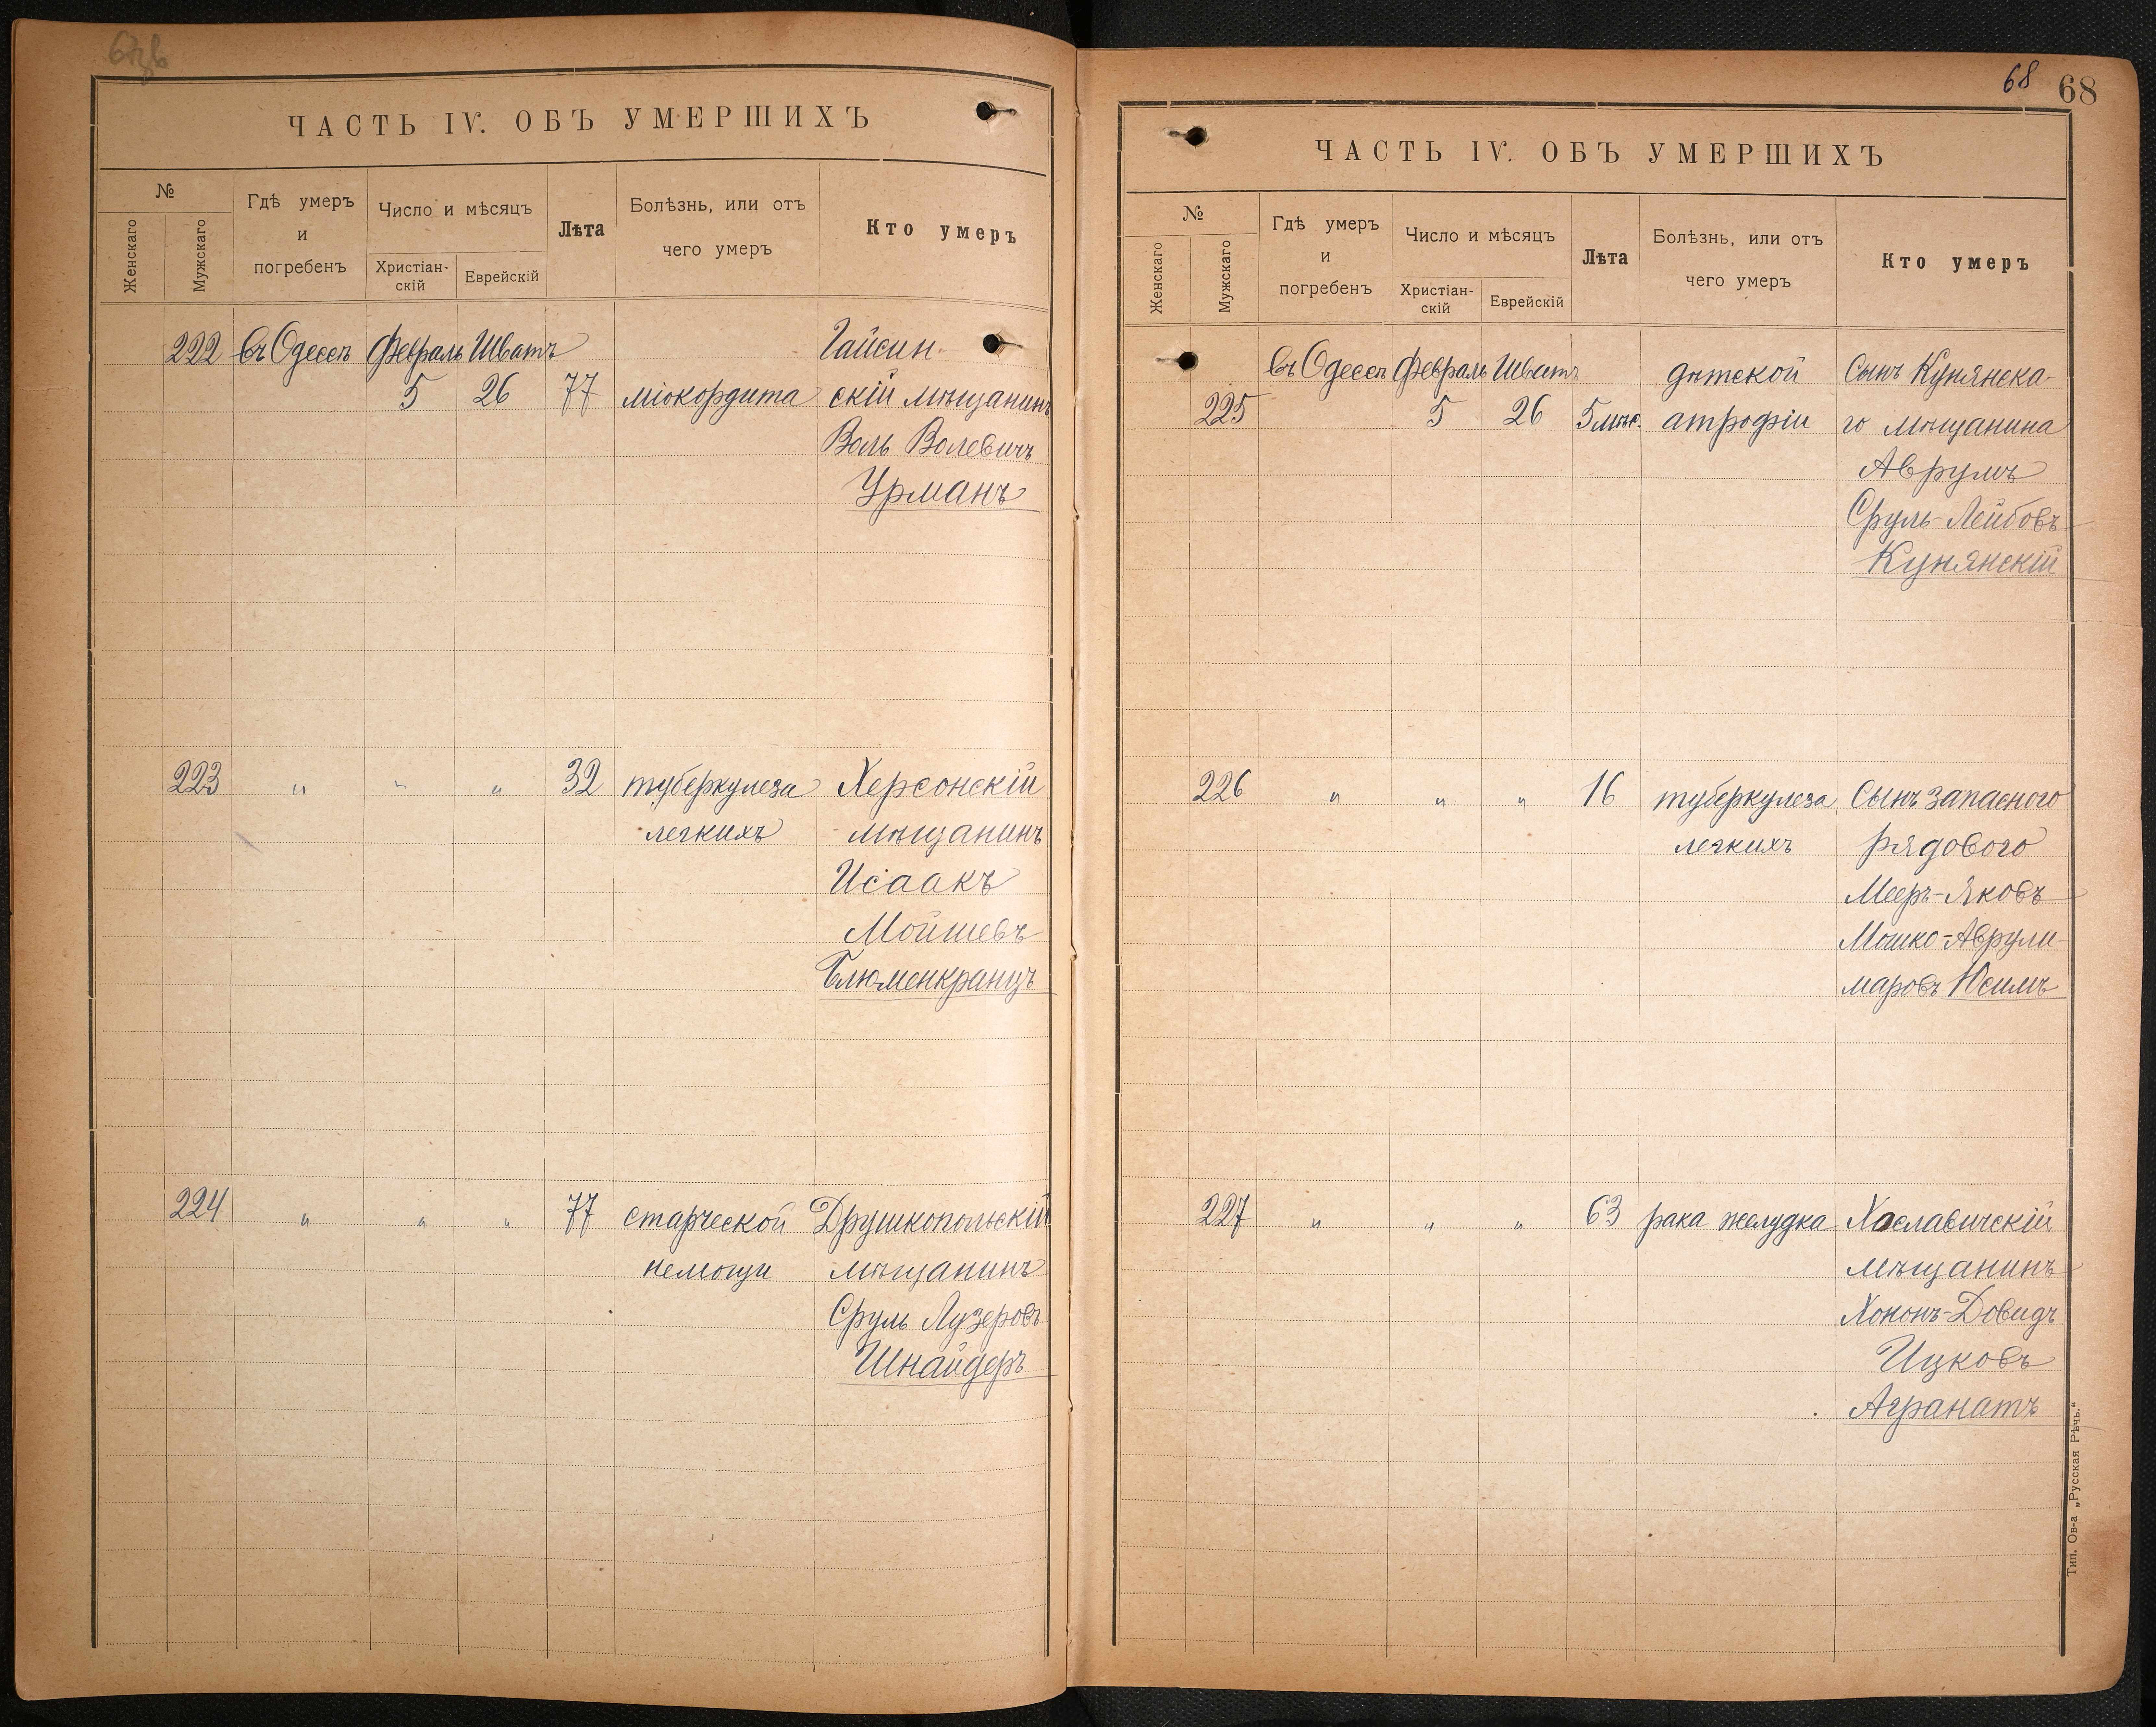 ЧАСТЬ IV. ОБЪ УМЕРШИХЪ
№
Женскаго
Мужскаго
Гдѣ умеръ
и
погребенъ
Число и мѣсяцъ
Христіан-
скій
Еврейскій
Лѣта
Болѣзнь, или отъ
чего умеръ
Кто умеръ
222 въ Одессѣ Февраль Шватъ Гайсин-
5 26 77 міокордита скій мѣщанинъ
Воль Волевичъ
Урманъ
223 " " " 32 туберкулеза Херсонскій
легкихъ мѣщанинъ
Исаакъ
Мойшевъ
Блюменкранцъ
224 " " " 77 старческой Друшкопольскій
немощи мѣщанинъ
Сруль Лузеровъ
Шнайдеръ
68 68
ЧАСТЬ IV. ОБЪ УМЕРШИХЪ
№
Женскаго
Мужскаго
Гдѣ умеръ
и
погребенъ
Число и мѣсяцъ
Христіан-
скій
Еврейскій
Лѣта
Болѣзнь, или отъ
чего умеръ
Кто умеръ
въ Одессѣ Февраль Шватъ дѣтской Сынъ Кунянска-
225 5 26 5 мѣс. атрофіи го мѣщанина
Аврумъ
Сруль-Лейбовъ
Кунянскій
226 " " " 16 туберкулеза Сынъ запасного
легкихъ рядового
Мееръ-Яковъ
Мошко-Аврули-
маровъ Юсимъ
227 " " " 63 рака желудка Хославичскій
мѣщанинъ
Хононъ-Довидъ
Ицковъ
Агранатъ
Тип. Ов-а „Русская Рѣчь."